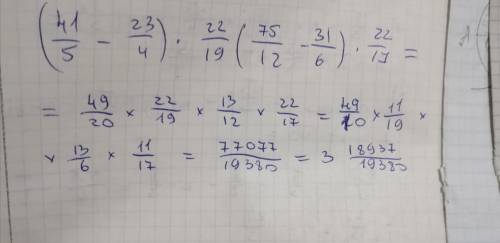 (41/5 - 23/4) · 22/19 (75/12 - 31/6) · 22/17 =
= 49/20 × 22/19 × 13/12 × 22/17 = 49/10 × 11/19 ×
× 13/6 × 11/17 = 77077/19380 = 3 18937/19380